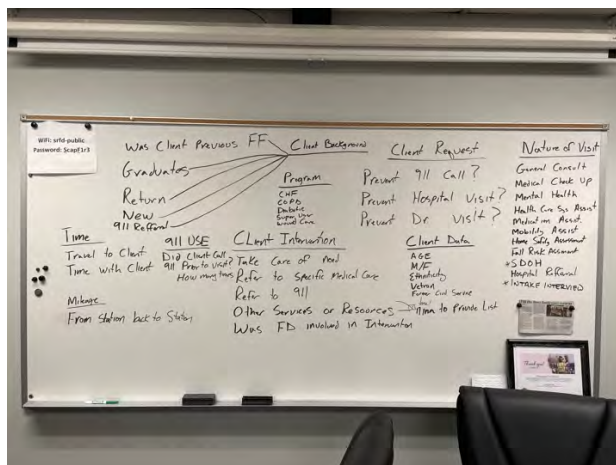 WiFi: srfd-public
Password: $capE1r3
Was Client Previous FF
Graduates
Return
New
911 Refferal
Client Background
Program
CHF
COPD
Diabetic
Super User
Wound Care
Client Request
Prevent 911 Call?
Prevent Hospital Visit?
Prevent Dr. Visit?
Nature of Visit
General Consult
Medical Check Up
Mental Health
Health Care Sys Assist
Medication Assist
Mobility Assist
Home Safety Assessment
Fall Risk Assessment
*SDOH
Hospital Refferal
*INTAKE INTERVIEW
Time
Travel to Client
Time with Client
Mileage
From station back to Station
911 USE
Did Client Call
911 Prior to Visit?
How many times
Client Intervention
Take Care of need
Refer to Specific Medical Care
Refer to 911
Other Services or Resources
to Provide List
Was FD involved in Intervention
Client Data
AGE
M/F
Ethnicity
Vetran
Former Civil Service
Thank you!